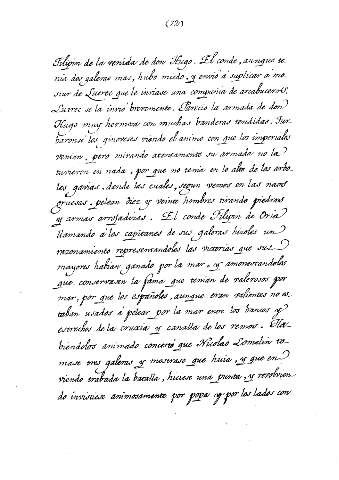 (121)
Filipin de la venida de don Hugo. El conde, aunque te
nia dos galeras mas, hubo miedo, y envió á suplicar á mo
siur de Lutrec que le inviase una compañia de arcabuceros.
Lutrec se la invió brevemente. Parecio la armada de don
Hugo muy hermosa con muchas banderas tendidas. Tur
baronse los ginoveses viendo el animo con que los imperiales
venian, pero mirando atentamente su armada no la
tuvieron en nada, por que no tenia en lo alto de los arbo
les gavias, donde las cuales, segun vemos en las naos
gruesas, pelean diez y veinte hombres tirando piedras
y armas arrojadizas. El conde Filipin de Oria
llamando á los capitanes de sus galeras hizoles un
razonamiento representandoles las vitorias que sus
mayores habian ganado por la mar, y amonestandolos
que conservasen la fama que tenian de valerosos por
mar, por que los españoles, aunque eran valientes no es
taban usados á pelear por la mar entre los bancos y
estrechos de la cruxia y canalla de los remos. Ha
biendolos animado concertó que Nicolao Lomelin to
mase tres galeras y mostrase que huia, y que en
viendo trabada la batalla, hiciese una punta, y revolvien
do invistiese animosamente por popa y por los lados con